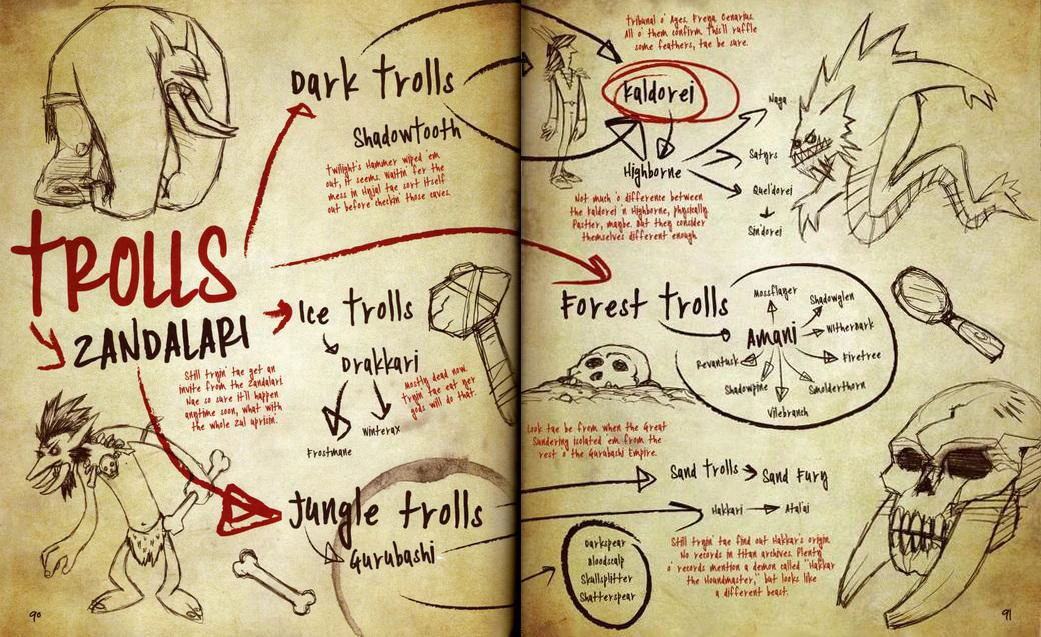 Dark Trolls
Shadowtooth
Twilight's Hammer wiped 'em
out, it seems. Waitin' fer the
mess in Hyjal tae sort itself
out before checkin' those caves.
TROLLS
ZANDALARI
Still tryin' tae get an
invite from the Zandalari.
Nae so sure it'll happen
anytime soon, what with
the whole Zul uprisin'.
Ice Trolls
Drakkari
Mostly dead now.
Tryin' tae eat yer
gods will do that.
Winterax
Frostmane
Jungle Trolls
Gurubashi
90
Tribunal o' Ages. Freya. Cenarius.
All o' them confirm. This'll ruffle
some feathers, tae be sure.
Kaldorei
Highborne
Not much o' difference between
the kaldorei 'n Highborne, physically.
Pastier, maybe. But they consider
themselves different enough.
Naga
Satyrs
Quel'dorei
Sin'dorei
Forest Trolls
Amani
Mossflayer
Shadowglen
Witherbark
Firetree
Smolderthorn
Vilebranch
Shadowpine
Revantusk
Look tae be from when the Great
Sundering isolated 'em from the
rest o' the Gurubashi Empire.
Sand Trolls
Sand Fury
Hakkari
Atal'ai
Darkspear
Bloodscalp
Skullsplitter
Shatterspear
Still tryin' tae find out Hakkar's origin.
No records in titan archives. Plenty
o' records mention a demon called "Hakkar
the Houndmaster," but looks like
a different beast.
91